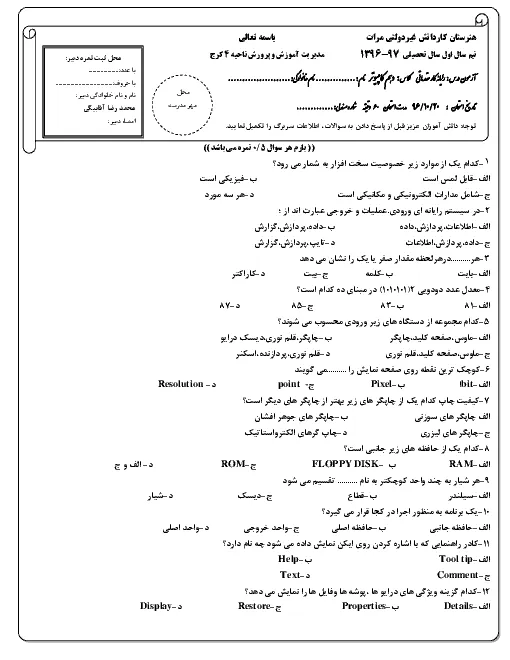 باسمه تعالی
هنرستان کاردانش غیردولتی مرات
نیم سال اول سال تحصیلی ۹۷-۱۳۹۶
مدیریت آموزش و پرورش ناحیه ۴ کرج
نام:................ نام خانوادگی:......................
تاریخ امتحان : ۹۶/۱۰/۲۰ مدت امتحان ۶۰ دقیقه
توجه: دانش آموزان عزیز قبل از پاسخ دادن به سوالات ، اطلاعات سربرگ را تکمیل نمایید.
محل
مهر مدرسه
محل ثبت نمره دبیر:
با عدد:--------
با حروف:---------------
نام و نام خانوادگی دبیر:
محمد رضا آقابیگی
امضاء دبیر:
(( بارم هر سوال ۰/۵ نمره می باشد ))
۱-کدام یک از موارد زیر خصوصیت سخت افزار به شمار می رود؟
الف-قابل لمس است ب-فیزیکی است
ج-شامل مدارات الکترونیکی و مکانیکی است د-هر سه مورد
۲-در سیستم رایانه ای ورودی،عملیات و خروجی عبارت اند از ؛
الف-اطلاعات،پردازش،داده ب-داده،پردازش،گزارش
ج-داده،پردازش،اطلاعات د-تایپ،پردازش،گزارش
۳-هر..........درهرلحظه مقدار صفر یا یک را نشان می دهد
الف-بایت ب-کلمه ج-بیت د-کاراکتر
۴-معدل عدد دودویی ۲(۱۰۱۰۱۰۱) در مبنای ده کدام است؟
الف-۸۱ ب-۸۳ ج-۸۵ د-۸۷
۵-کدام مجموعه از دستگاه های زیر ورودی محسوب می شوند؟
الف-ماوس،صفحه کلید،چاپگر ب-چاپگر،قلم نوری،دیسک درایو
ج-ماوس،صفحه کلید،قلم نوری د-قلم نوری،پردازنده،اسکنر
۶-کوچک ترین نقطه روی صفحه نمایش را .........می گویند
الف-bit ب-Pixel ج- point د- Resolution
۷-کیفیت چاپ کدام یک از چاپگر های زیر بهتر از چاپگر های دیگر است؟
الف چاپگر های سوزنی ب-چاپگر های جوهر افشان
ج-چاپگر های لیزری د-چاپ گرهای الکترواستاتیک
۸-کدام یک از حافظه های زیر جانبی است؟
الف-RAM ب -FLOPPY DISK ج-ROM د- الف و ج
۹-هر شیار به چند واحد کوچکتر به نام .......... تقسیم می شود
الف-سیلندر ب-قطاع ج-دیسک د-شیار
۱۰-یک برنامه به منظور اجرا در کجا قرار می گیرد؟
الف-حافظه جانبی ب-حافظه اصلی ج-واحد خروجی د-واحد اصلی
۱۱-کادر راهنمایی که با اشاره کردن روی ایکن نمایش داده می شود چه نام دارد؟
الف-Tool tip ب-Help
ج-Comment د-Text
۱۲-کدام گزینه ویژگی های درایو ها ،پوشه ها وفایل ها را نمایش می دهد؟
الف-Details ب-Properties ج-Restore د-Display